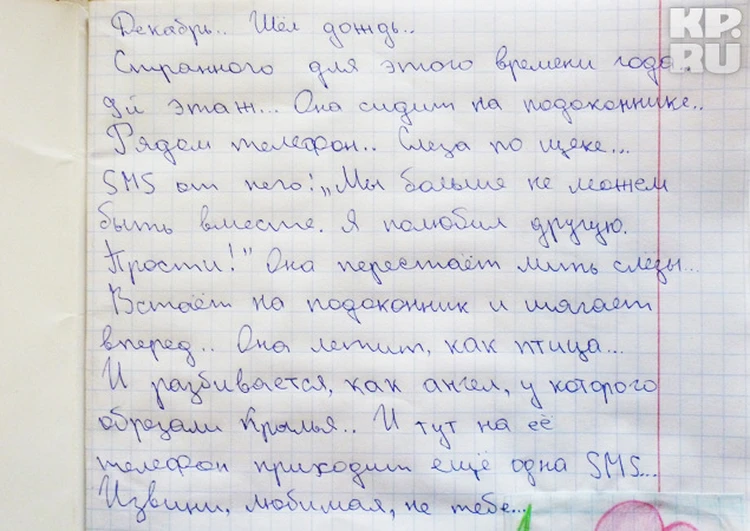 KP.RU
Декабрь.. Шёл дождь..
Странного для этого времени года.
9й этаж... Она сидит на подоконнике..
Рядом телефон.. Слеза по щеке...
SMS от него: „Мы больше не можем
быть вместе. Я полюбил другую.
Прости!" Она перестаёт лить слёзы...
Встаёт на подоконник и шагает
вперед.. Она летит, как птица...
И разбивается, как ангел, у которого
обрезали крылья.. И тут на её
телефон приходит ещё одна SMS...
Извини, любимая, не тебе...